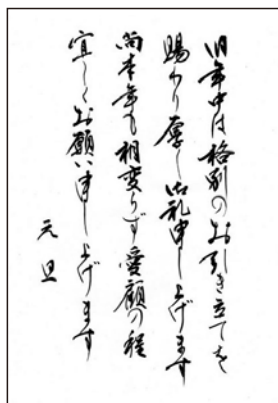 旧年中は格別のお引き立てを
賜わり厚く御礼申し上げます
尚本年も相変らず愛顧の程
宜しくお願い申し上げます
元旦